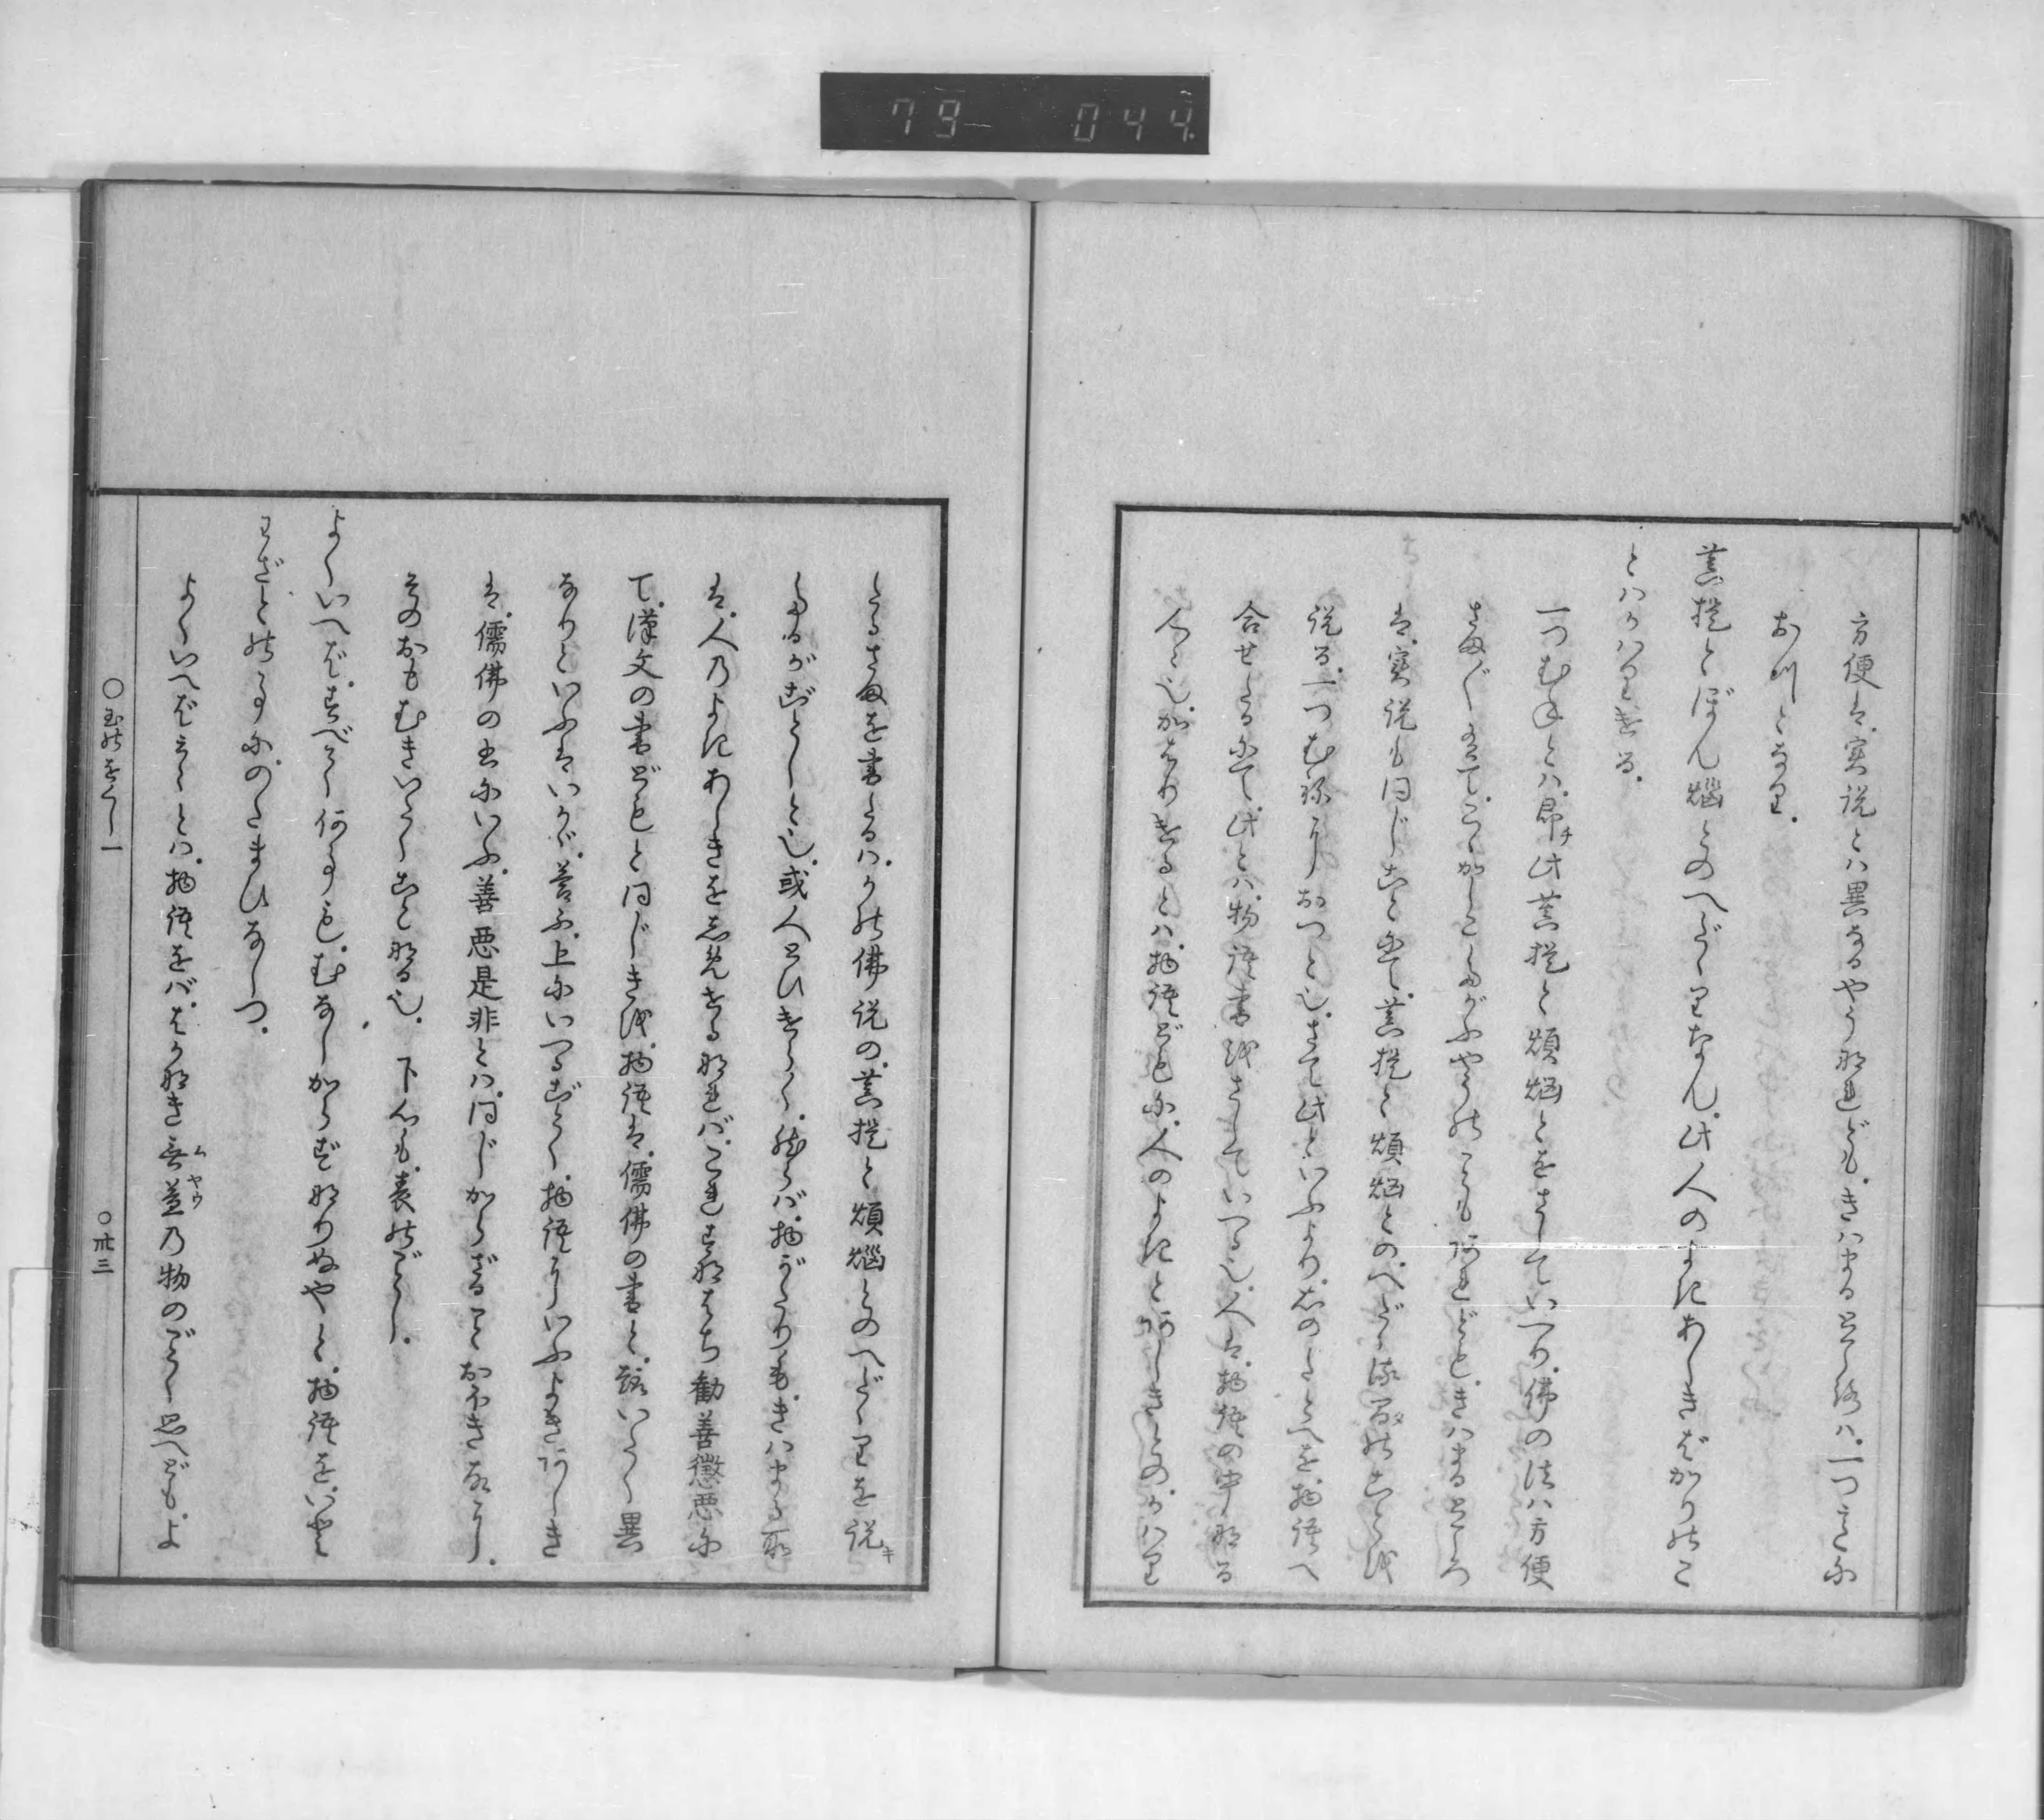 79— 044
方便は、実説とハ異なるやうなれども、きはまるところハ、一つこゝろに
おつとなり、
菩提とぼん悩とのへだゝりなん、此人のよきあしきばかりのこ
とハかハりける、
一つむねとハ、即チ此菩提と煩悩とをさしていへり、佛の法ハ方便
さま〴〵有て、こゝかしこたがふやうのことも有れども、きハまるところ
は、実説も同じことにて、菩提と煩悩とのへだゝれることを
説る、一つむねにおつと也、さて此といふより、右のたとへを物語へ
合せたるにて、此とハ、物語書をさしていへる也、人は、物語の中なる
人々也、かはりけるとハ、物語どもに、人のよきとあしきとのかハり
たるさまを書たるハ、かの佛説の、菩提と煩悩とのへだゝりを説キ
たるがごとしと也、或人とひけらく、然らば、物がたりも、きハまる所
は、人のよきあしきをしらせたるなれバ、これすなはち勧善懲悪に
て、漢文の書どもと同じきを、物語は、儒佛の書と、趣いたく異
なりといふはいかゞ、答ふ、上にいへるごとく、物語にいふよきあしき
は、儒佛の書にいふ、善悪是非とハ、同じからざること多き故に、
そのおもむきいたくことなる也、下心も、表のごとし、
よくいへば、すべて何事も、むなしからずなりぬやと、物語を、いと
わざとの事に、のたまひなしつ、
よくいへばよくとハ、物語をバ、はかなき無益ムヤウの物のごとく思へども、よ
○玉のをぐし一 ○卅三